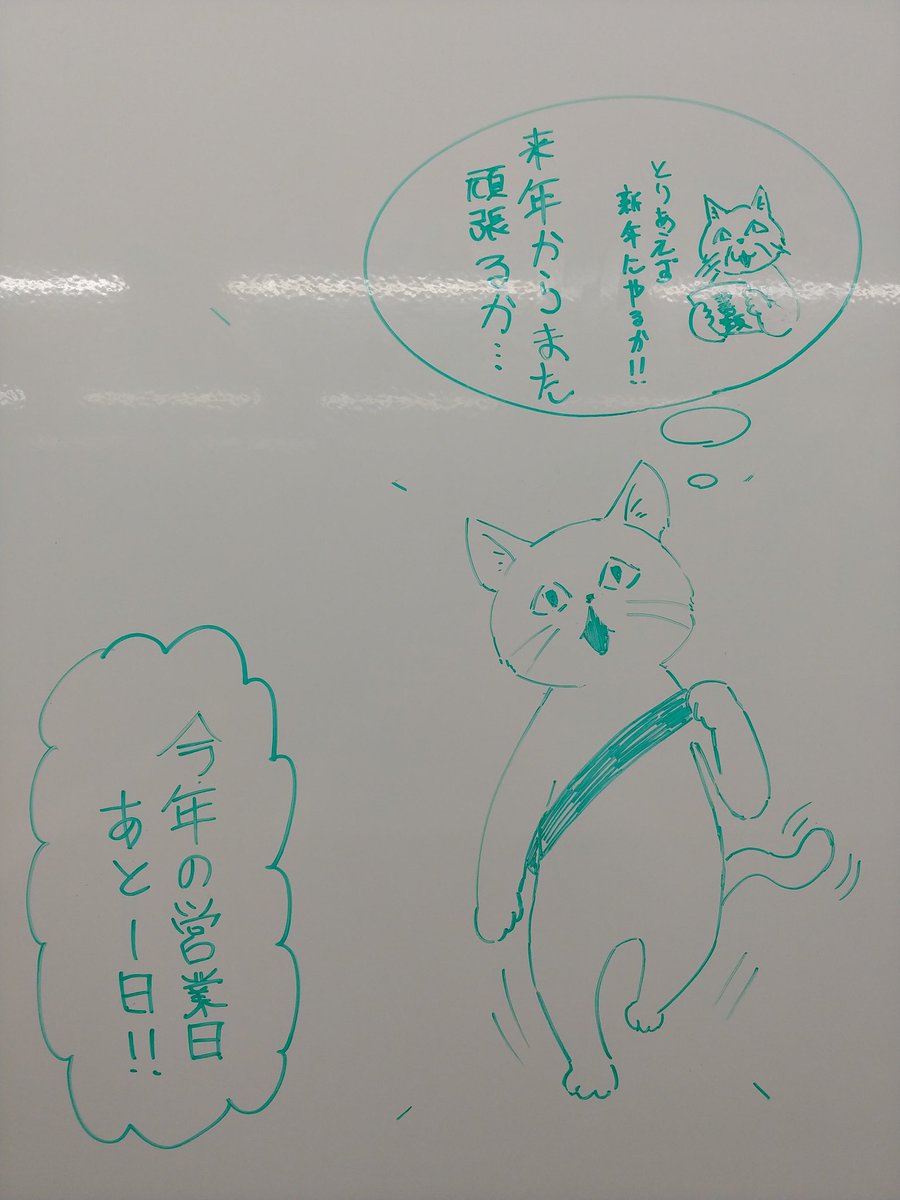 とりあえず
新年にやるか!!
来年からまた
頑張るか…
今年の営業日
あと一日!!